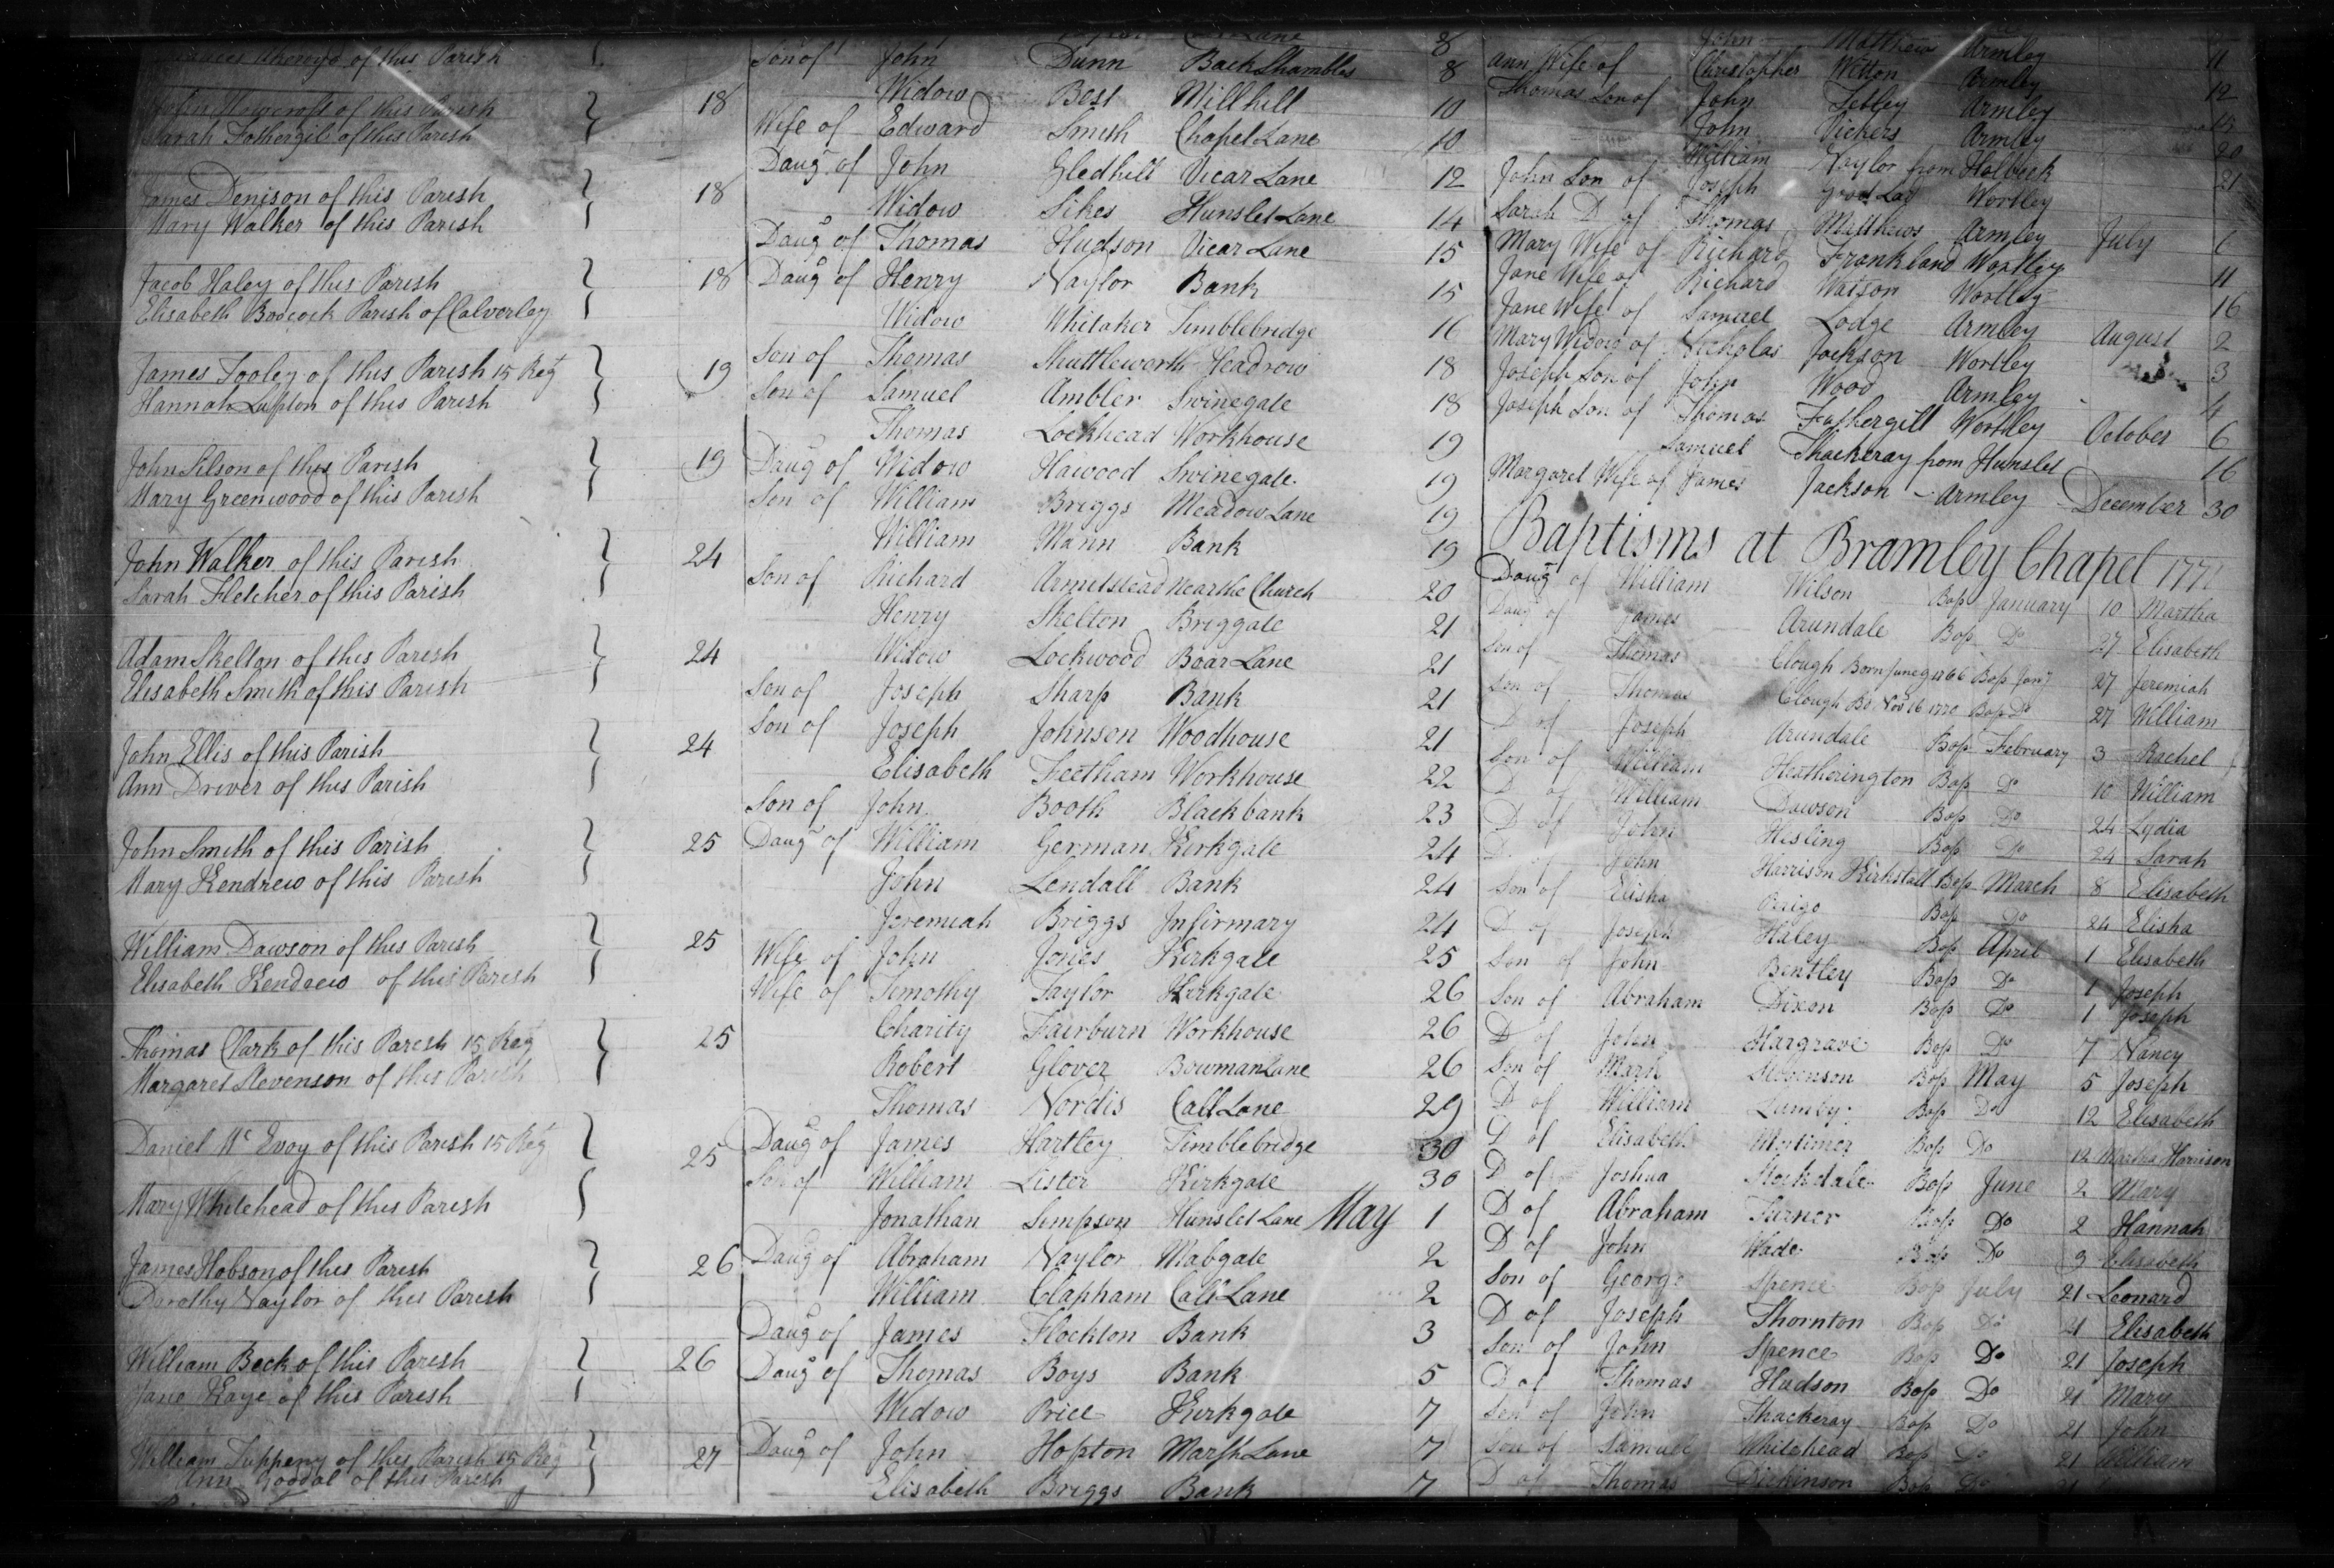 of this Parish
of this Parish 18
Sarah Fothergil of this Parish
James Denison of this Parish 18
Mary Walker of this Parish
Jacob Haley of this Parish 18
Elisabeth Bowcock Parish of Calverley
James Tooley of this Parish 15 Regt 19
Hannah Lupton of this Parish
John Silson of this Parish 19
Mary Greenwood of this Parish
John Walker of this Parish 24
Sarah Fletcher of this Parish
Adam Skelton of this Parish 24
Elisabeth Smith of this Parish
John Ellis of this Parish 24
Ann Driver of this Parish
John Smith of this Parish 25
Mary Kendrew of this Parish
William Dawson of this Parish 25
Elisabeth Kendrew of this Parish
Thomas Clark of this Parish 15 Regt 25
Margaret Stevenson of this Parish
Daniel Mc Evoy of this Parish 15 Regt 25
Mary Whitehead of this Parish
James Hobson of this Parish 26
Dorothy Naylor of this Parish
William Beck of this Parish 26
Jane Kaye of this Parish
William Tuppeny of this Parish 15 Reg 27
Ann Goodal of this Parish
Son of John Dunn Back Shambles 8
Widow Best Millhill 10
Wife of Edward Smith Chapel Lane 10
Daugr of John Gledhill Vicar Lane 12
Widow Sikes Hunslet Lane 14
Daugr of Thomas Hudson Vicar Lane 15
Daugr of Henry Naylor Bank 15
Widow Whitaker Timblebridge 16
Son of Thomas Shuttleworth Headrow 18
Son of Samuel Ambler Swinegate 18
Thomas Lockhead Workhouse 19
Daugr of Widow Hawood Swinegate 19
Son of William Briggs Meadow Lane 19
William Mann Bank 19
Son of Richard Armetstead near the Church 20
Henry Skelton Briggate 21
Widow Lockwood Boar Lane 21
Son of Joseph Sharp Bank 21
Son of Joseph Johnson Woodhouse 21
Elisabeth Feetham Workhouse 22
Son of John Booth Blackbank 23
Daugr of William German Kirkgate 24
John Lendall Bank 24
Jeremiah Briggs Infirmary 24
Wife of John Jones Kirkgate 25
Wife of Timothy Taylor Kirkgate 26
Charity Fairburn Workhouse 26
Robert Glover Bowman Lane 26
Thomas Nordis Call Lane 29
Daug of James Hartley Timblebridge 30
Son of William Lister Kirkgate 30
Jonathan Simpson Hunslet Lane May 1
Daug of Abraham Naylor Mabgate 2
William Clapham Call Lane 2
Daug of James Flockton Bank 3
Daug of Thomas Boys Bank 5
Widow Price Kirkgate 7
Daug of John Hopton Marsh Lane 7
Elisabeth Briggs Bank 7
John Matthews Armley 11
Ann Wife of Christopher Witton Armley 12
Thomas Son of John Tetley Armley
John Vickers Armley 20
William Naylor from Holbeck 21
John Son of Joseph Good Lad Wortley
Sarah D of Thomas Matthews Armley July 6
Mary Wife of Richard Frankland Wortley 11
Jane Wife of Richard Watson Wortley 16
Jane Wife of Samuel Lodge Armley August 2
Mary Widow of Nicholas Jackson Wortley 3
Joseph Son of John Wood Armley 4
Joseph Son of Thomas Fothergill Wortley October 6
Samuel Thackeray from Hunslet 16
Margaret Wife of James Jackson Armley December 30
Baptisms at Bramley Chapel 1771
Daug of William Wilson Bap January 10 Martha
Daug of James Arundale Bap Do 27 Elisabeth
Son of Thomas Clough Born June 9 1766 Bap Jany 27 Jeremiah
Son of Thomas Clough Bo. Nov 16 1770 Bap Do 27 William
D of Joseph Arundale Bap February 3 Rachel
Son of William Heatherington Bap Do 10 William
D of William Dawson Bap Do 24 Lydia
D of John Hisling Bap Do 24 Sarah
D of John Harrison Kirkstall Bap March 8 Elisabeth
Son of Elisha Perigo Bap Do 24 Elisha
D of Joseph Haley Bap April 1 Elisabeth
Son of John Bentley Bap Do 1 Joseph
Son of Abraham Dixon Bap Do 1 Joseph
D of John Hargrave Bap Do 7 Nancy
Son of Mark Stevenson Bap May 5 Joseph
D of William Lumby Bap Do 12 Elisabeth
D of Elisabeth Mortimer Bap Do 12 Martha Harrison
D of Joshua Stockdale Bap June 2 Mary
D of Abraham Turner Bap Do 2 Hannah
D of John Wade Bap Do 9 Elisabeth
Son of George Spence Bap July 21 Leonard
D of Joseph Thornton Bap Do 21 Elisabeth
Son of John Spence Bap Do 21 Joseph
D of Thomas Hudson Bap Do 21 Mary
Son of John Thackeray Bap Do 21 John
Son of Samuel Whitehead Bap Do 21 William
D of Thomas Dickinson Bap Do 21